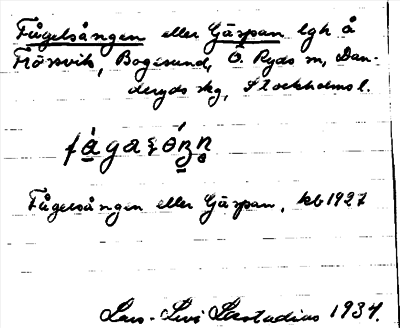 Fågelsången eller Gäspan lgh å
Frösvik, Bogesund, Ö. Ryds sn, Dan-
deryds skg, Stockholms l.
Fågelsången eller Gäspan, kb 1927
Lars-Levi Læstadius 1934.